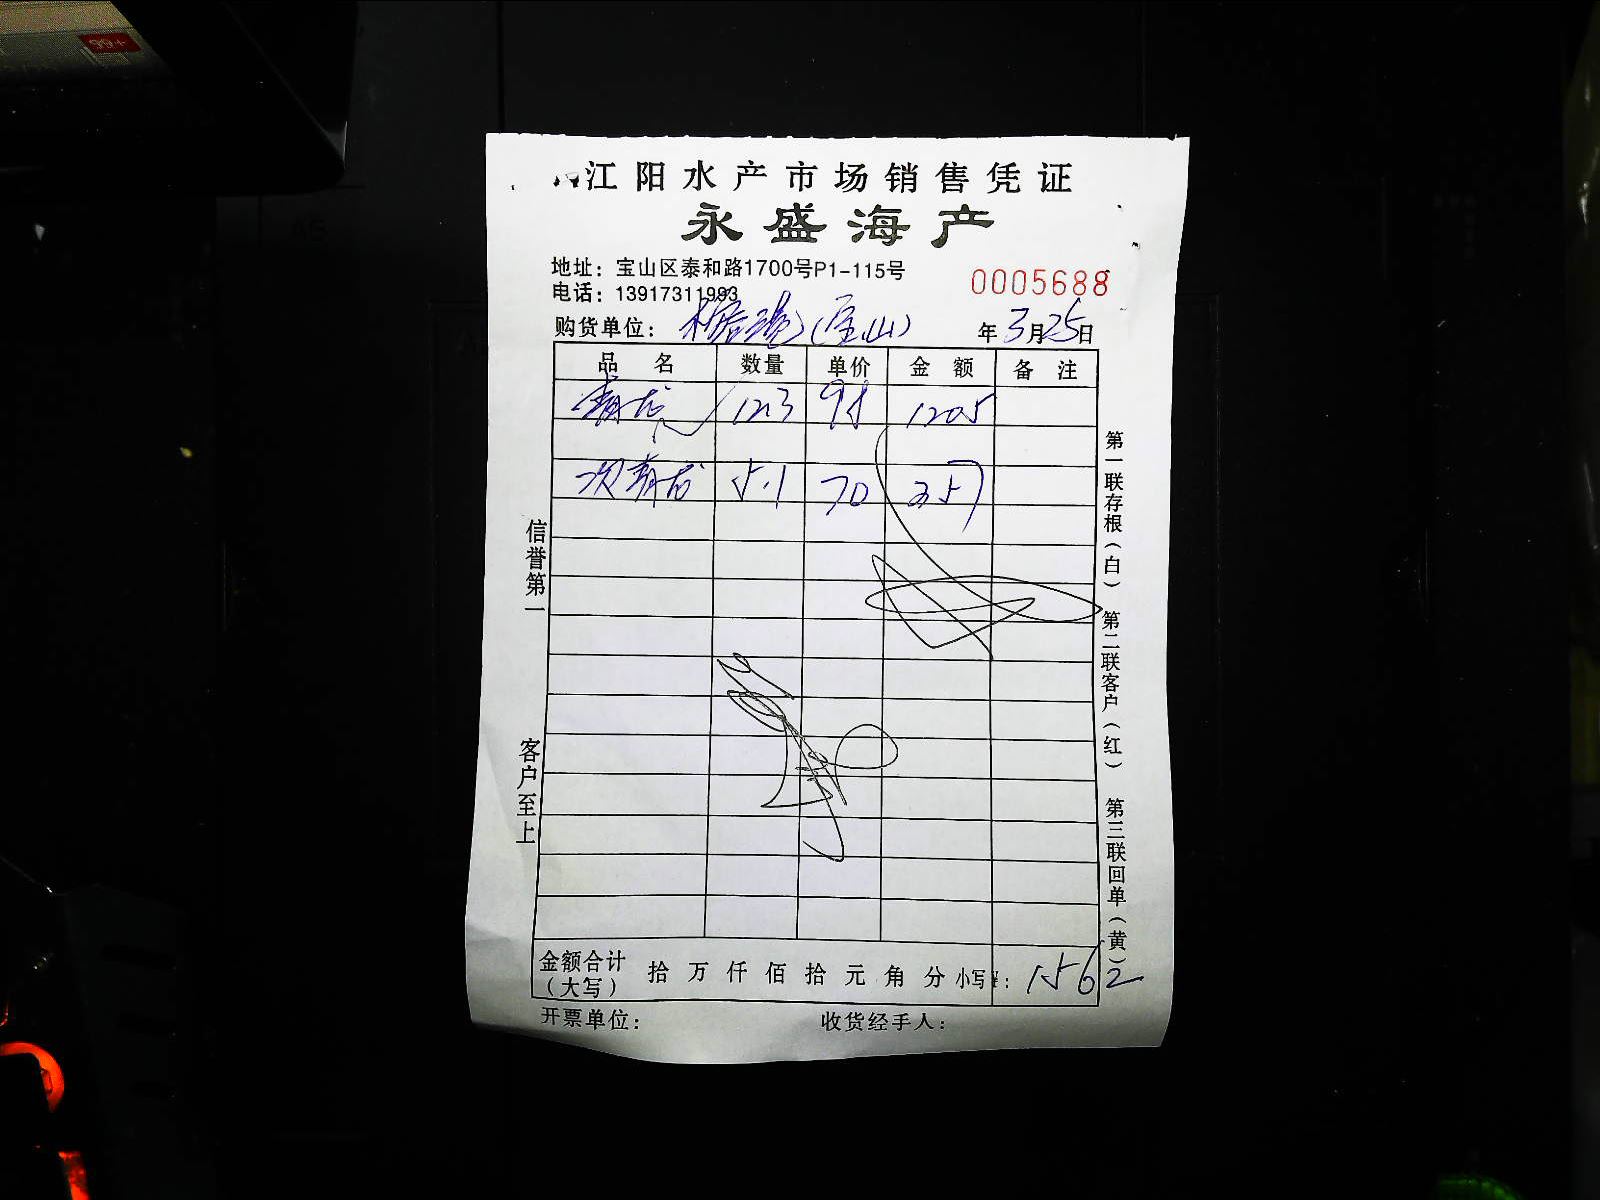 江阳水产市场销售凭证
永盛海产
地址：宝山区泰和路1700号P1-115号
电话：13917311993
0005688
购货单位： (宝山) 年3月25日
品 名 数量 单价 金 额 备 注
青龙 12.3 98 1205
次青龙 5.1 70 357
信誉第一
客户至上
第一联存根（白） 第二联客户（红） 第三联回单（黄）
金额合计（大写） 拾 万 仟 佰 拾 元 角 分 小写¥：1562
开票单位： 收货经手人：
99+